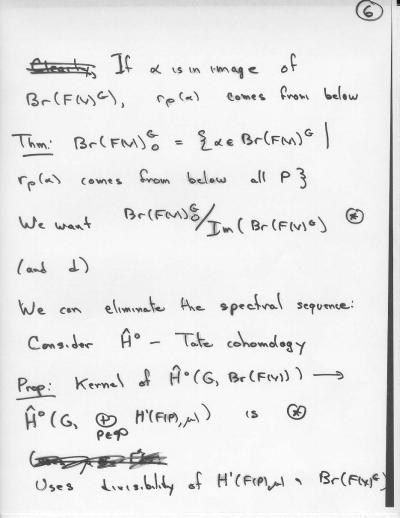 6
If α is in image of
Br(F(V)^G), r_p(α) comes from below
Thm: Br(F(M)_0^G = { α ∈ Br(F(M)^G |
r_p(α) comes from below all P }
We want Br(F(V)_0^G / Im( Br(F(V)^G) ⊛
(and d)
We can eliminate the spectral sequence:
Consider Ĥ⁰ – Tate cohomology
Prop: Kernel of Ĥ⁰(G, Br(F(V))) →
Ĥ⁰(G, ⊕_{P∈𝒫} H'(F(P),μ)) is ⊛
Uses divisibility of H'(F(P),μ), Br(F(V)^G)